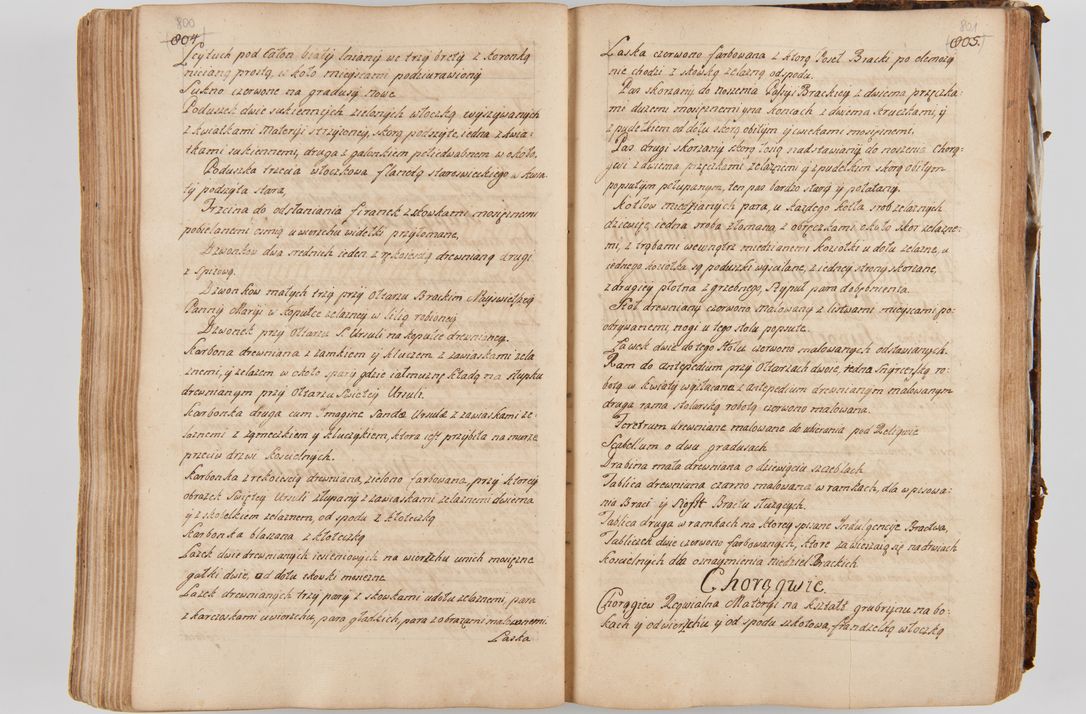 800
804.
pod białÿ lnianÿ we trzÿ bretÿ z koronką
nicianą prostą w koło mieÿscami podziurawionÿ
Sukno czerwone na gradusÿ nowe
Poduszek dwie sukiennÿch zielonÿch włoczką wÿszÿwanÿch
z kwiatkami Materÿi strzÿzoneÿ, skorą podszÿte, jedna z kwia-
tkami sukiennemi, druga z galonkiem połiedwabnem w około.
Poduszka trzecia włoczkowa
tÿ podszÿta stara,
Trzcina do odsłaniania firanek z skowkami mosięznemi
pobielanemi cÿną u wierzchu widełki przÿłomane,
Dzwonków dwa srednich ieden z rękoiescią drewnianą drugi
z spizową.
Dzwonkow małÿch trzÿ przÿ Ołtarzu Brackim Naÿswiętszeÿ
Pannÿ Marÿi w kopułce zelazneÿ w lilią robioneÿ
Dzwonek przÿ Ołtarzu S. Ursuli na kopułce drewnianeÿ.
Karbona drewniana z zamkiem ÿ kluczem z zawiaskami zela
znemi, ÿ zelazem w około sparÿ gdzie iałmuznę kładą na słupku
drewnianÿm przÿ Ołtarzu Swiętey Ursuli.
Skarbonka druga cum Imagine Sanctæ Ursulæ z zawiaskami ze-
laznemi z zameczkiem ÿ kluczÿkiem, ktora iest przÿbita na murze
przeciw drzwi Koscielnÿch.
Karbonka z rękoiescią drewniana, zielono farbowana, przÿ ktoreÿ
obrazek Swięteÿ Ursuli złupanÿ z zawiaskami zelaznemi dwiema
ÿ z skobelkiem zelaznem, od spodu z kłoteczką
Skarbonka blaszana z kłoteczką
Lazek dwie drewnianÿch iesienowÿch na wierzchu unich mosięzne
gałki dwie, od dołu skowki mosięzne
Lazek drewnianÿch trzÿ parÿ z skowkami udołu zelaznemi, para
z karczoskami uwierzchu, para gładkich, para z obrazami malowanemi.
Laska
801
805.
Laska czerwono farbowana z ktorą Poseł Bracki po elemozÿ
nie chodzi z skowką zelazną odspodu.
Pas skorzanÿ do noszenia Passÿi Brackieÿ z dwiema przęczka-
mi duzemi mosięznemi ÿna koncach z dwiema sprzączkami, ÿ
z pudełkiem od dołu skorą obitÿm ÿ cwiekami mosięznemi,
Pas drugi skorzanÿ skorą łosią nadstawianÿ do noszenia Chorą-
gwi z dwiema przęczkami zelaznemi ÿ z pudełkiem skorą obitÿm
popsutÿm połupanÿm, ten pas bardzo starÿ ÿ połatanÿ.
Kotłow miedzianÿch para, u kazdego kotła srob zelaznÿch
dziewięc jedna sroba złomana, z obręczkami około skor zelazne-
mi, z trąbami wewnątrz miedzianemi koziołki u dołu zelazne, u
jednego koziołka są poduszki wÿsiełane, z iedneÿ stronÿ skorzane,
z drugieÿ płotna zgrzebnego, Szÿpuł para dobębnienia.
Stoł drewnianÿ czerwono malowanÿ z listwami mieÿscami po-
odrÿwanemi, nogi u tego stołu popsute.
Ławek dwie do tego stołu czerwono malowanÿch odstawianÿch.
Ram do antepedium przÿ Ołtarzach dwoie, iedna Snÿcerską ro-
botą w kwiatÿ wÿrzÿnana z antepedium drewnianÿm malowanÿm
druga rama stolarską robotą czerwono malowana.
Feretrum drewniane malowane do ubierania pod Reliqwie
Scabellum o dwu gradusach
Drabina mała drewniana o dziewięciu szczeblach
Tablica drewniana czarno malowana w ramkach, dla wpisowa-
nia Braci ÿ Siostr Bractu słuzącÿch.
Tablica druga w ramkach na ktoreÿ spisane Indulgencÿe Bractwa,
Tabliczek dwie czerwono farbowanÿch, ktore zawieszaią się na drwiach
Koscielnÿch dla oznaÿmienia niedziel Brackich
Chorągwie.
Chorągiew Regwialna Materÿi na kształt grubrÿnu na bo-
kach ÿ odwierzchu ÿ od spodu szkotowa, frandzelką włoczką